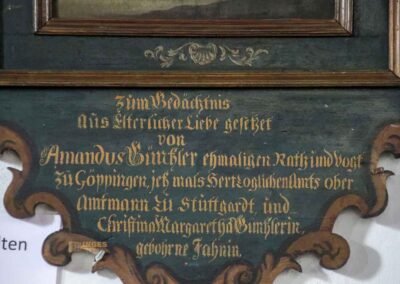 Zum Gedächtnis
Aus Elterlicher Liebe gesetzet
von
Amandus Günthler ehmaligen Rath und Vogt
Zu Göppingen, jetz mals Hertzoglichen Amts ober
Amtmann Zu Stuttgardt und
Christina Margaretha Gunthlerin,
gebohrne Jahnin.
ten